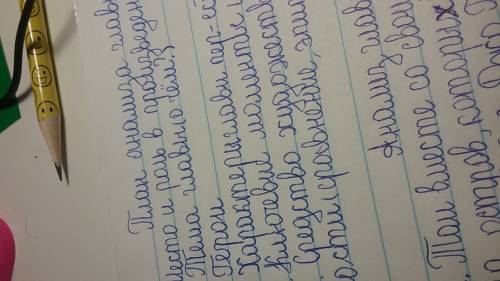 План анализа глав
Место и роль в произведен
Тема главы (о чём?)
Герои
Характеристики пер-ей
Ключевые моменты и
Средства художеств
сравнение, эпи
Анализ глав
Том вместе со свои
остров, которых